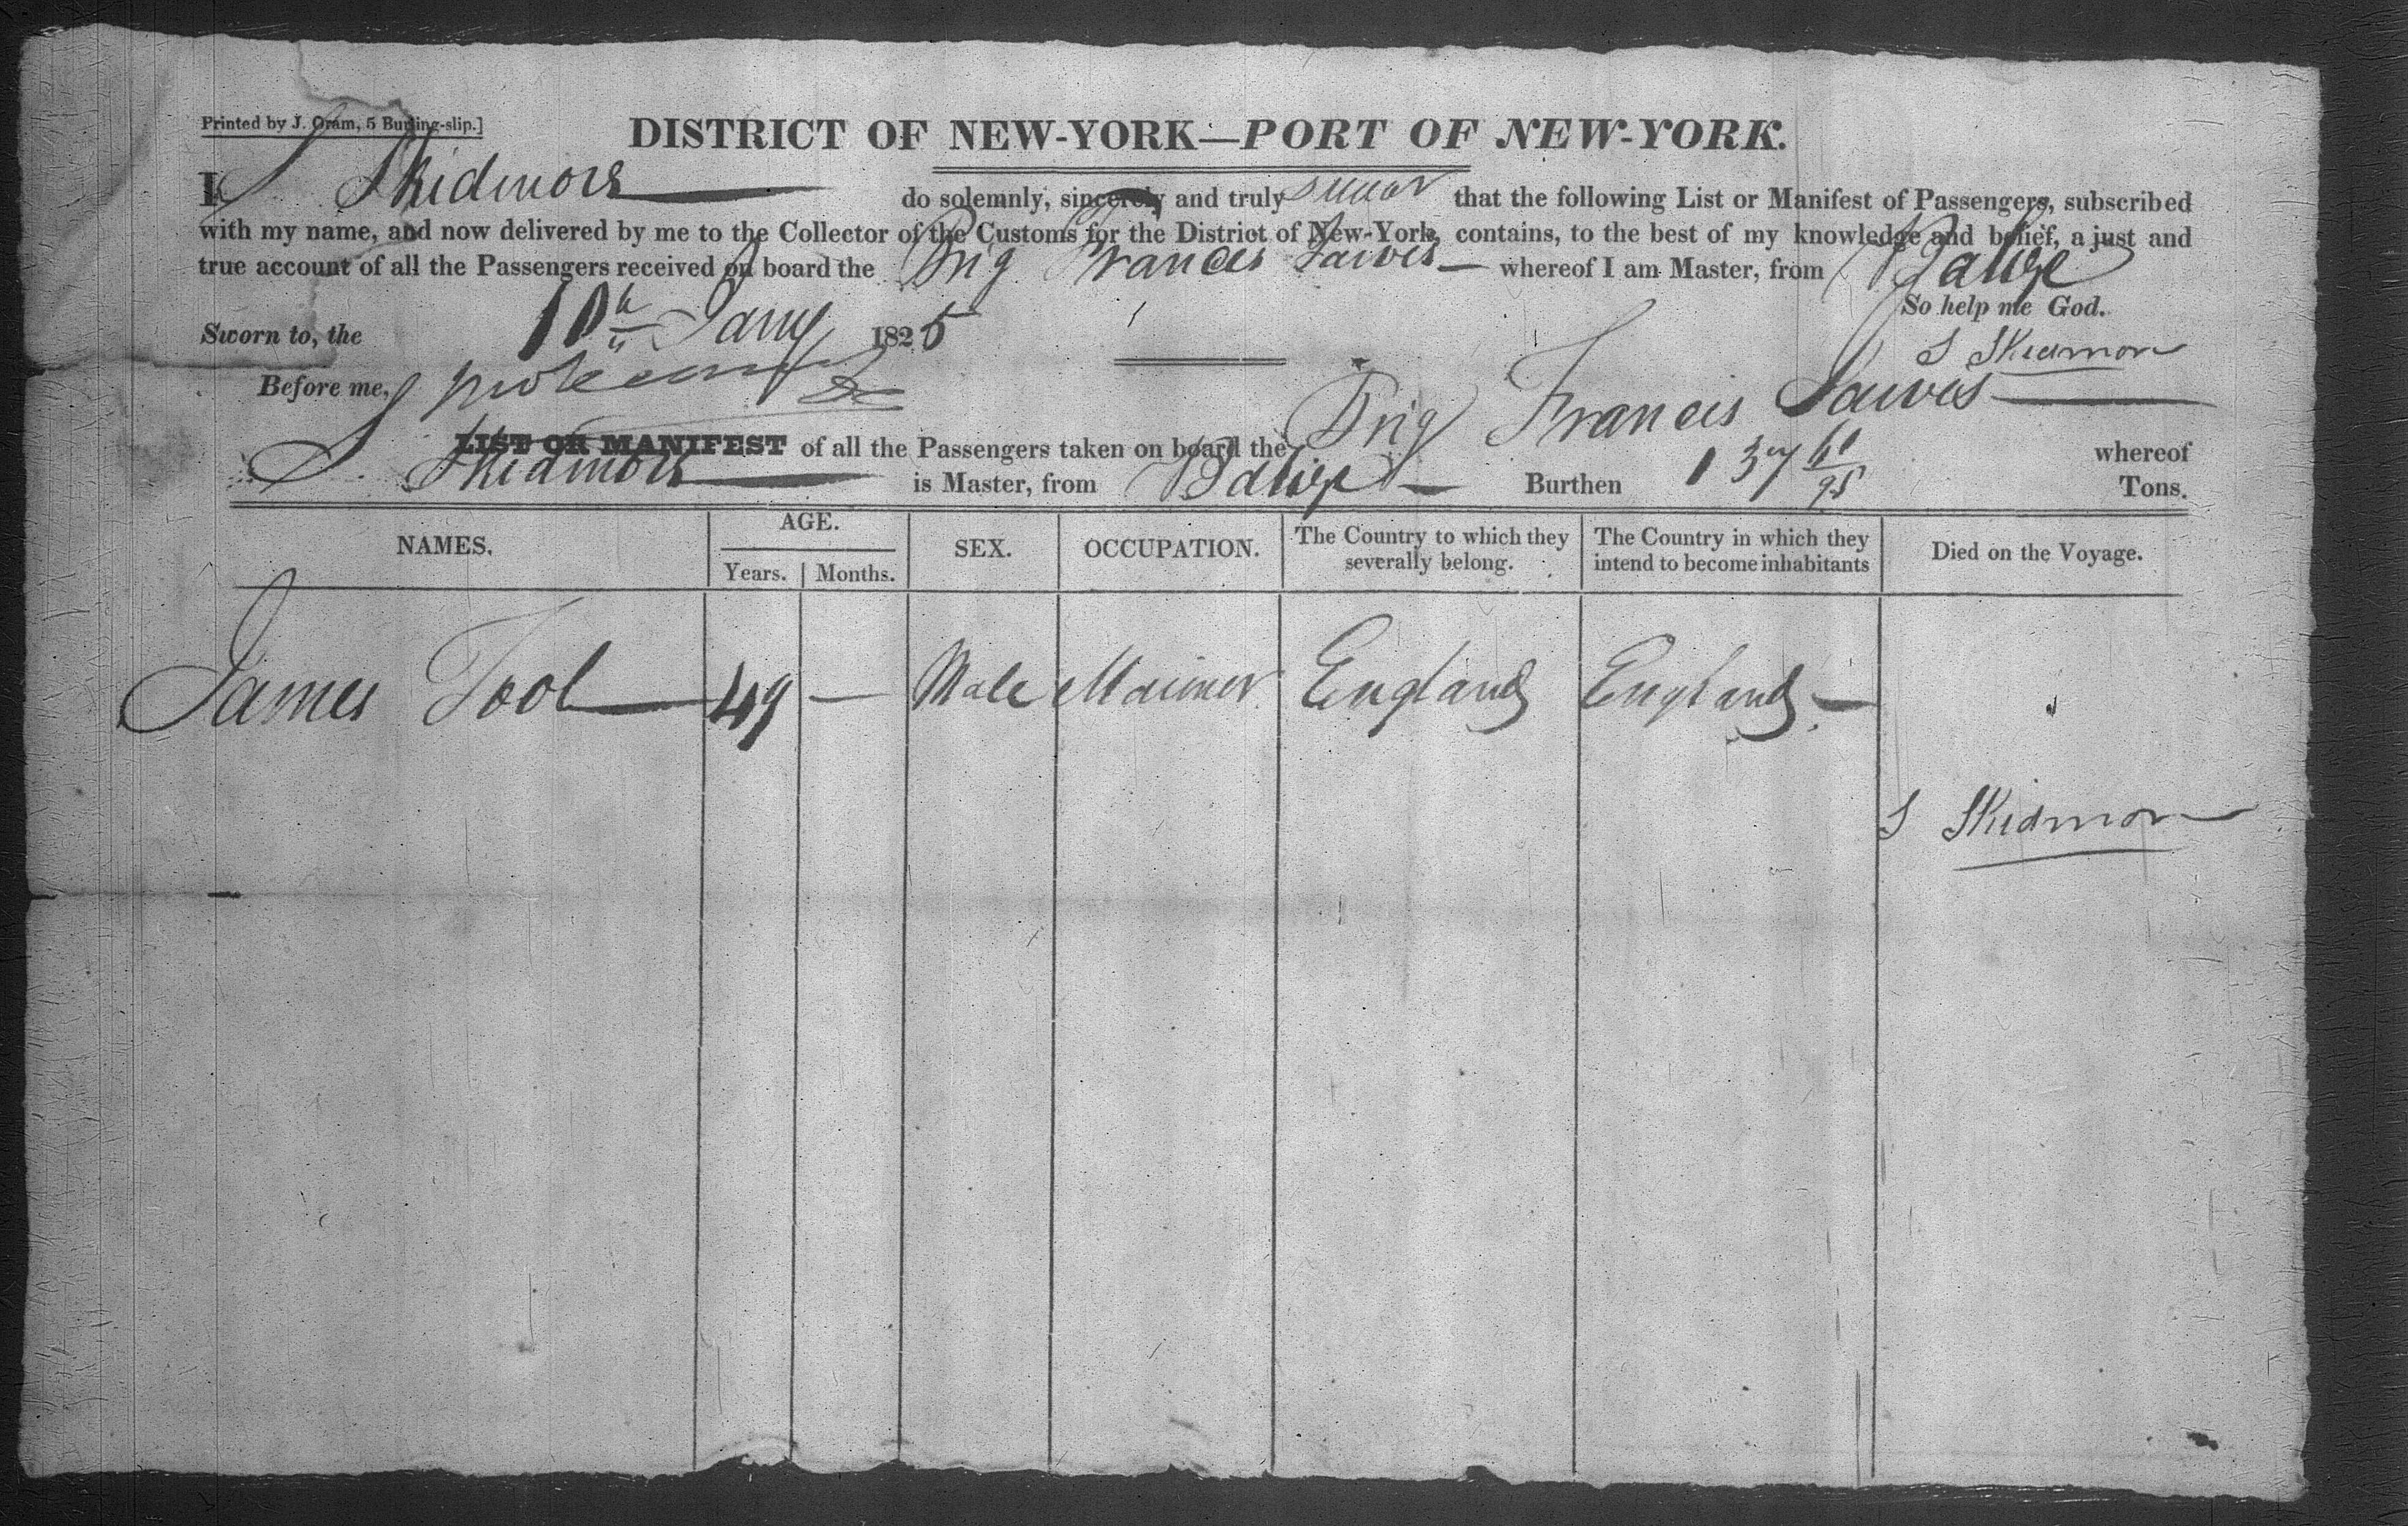 Printed by J. Oram, 5 Burling-slip.]
DISTRICT OF NEW-YORK—PORT OF NEW-YORK.
I S Skidmore do solemnly, sincerely and truly swear that the following List or Manifest of Passengers, subscribed
with my name, and now delivered by me to the Collector of the Customs for the District of New-York, contains, to the best of my knowledge and belief, a just and
true account of all the Passengers received on board the Brig Francis Jarvis whereof I am Master, from Balize
So help me God.
Sworn to, the 10th Jany 1825
S Skidmore
Before me,
LIST OR MANIFEST of all the Passengers taken on board the Brig Francis Jarvis whereof
S. Skidmore is Master, from Balize Burthen 137 61/95 Tons.
NAMES. AGE. SEX. OCCUPATION. The Country to which they severally belong. The Country in which they intend to become inhabitants Died on the Voyage.
Years. Months.
James Tool 49 — Male Mariner England England —
S Skidmore